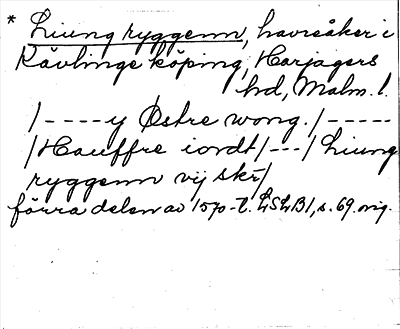 * Liung ryggenn, havreåker i
Kävlinge köping, Harjagers
hd, Malm. l.
/----y Østre wong./-----
/Hauffre iordt/---/Liung
ryggenn vij skr/
förra delen av 1570-t. LSLB1, s. 69. orig.